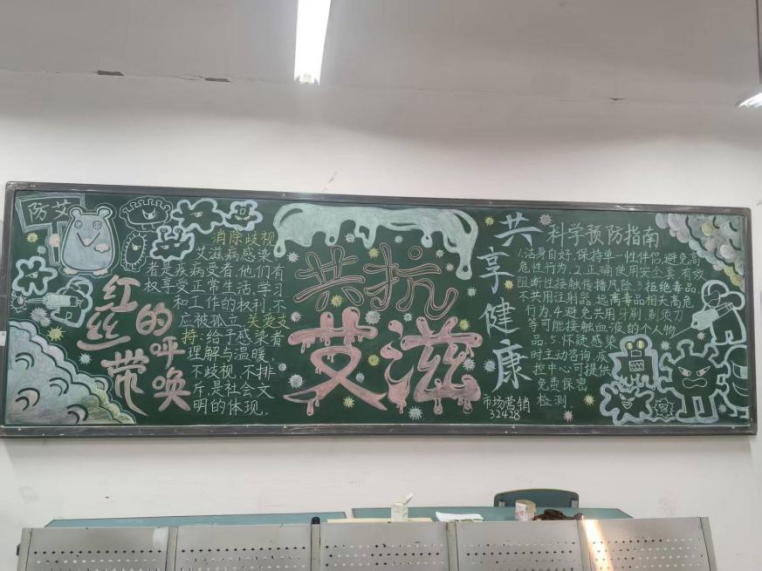 防艾
红丝带
的呼唤
消除歧视
艾滋病感染
者是疾病受者,他们有
权享受正常生活,学习
和工作的权利,不
应被孤立.关爱支
持:给予感染者
理解与温暖,
不歧视,不排
斥,是社会文
明的体现.
共抗
艾滋
共享健康
市场营销
32428
科学预防指南
1.洁身自好,保持单一性伴侣,避免高
危性行为.2.正确使用安全套,有效
阻断性接触传播风险.3.拒绝毒品,
不共用注射器,远离毒品相关高危
行为.4.避免共用牙刷,剃须刀
等可能接触血液的个人物
品.5.怀疑感染
时主动咨询,疾
控中心可提供
免费保密
检测.